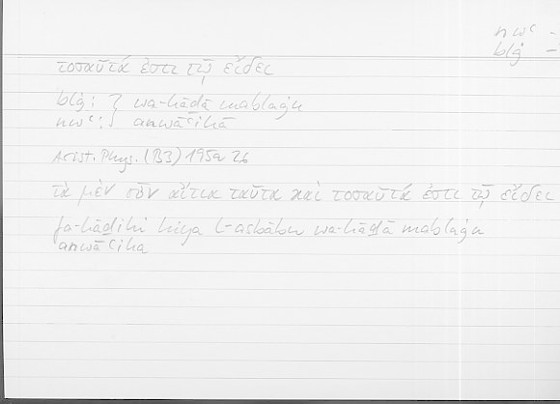 nwʿ -
blġ -
τοσαῦτά ἐστι τῷ εἴδει
blġ : } wa-hāḏā mablaġu
nwʿ : } anwāʿihā
Arist. Phys. (B3) 195a 26
τὰ μὲν οὖν αἴτια ταῦτα καὶ τοσαῦτά ἐστι τῷ εἴδει
fa-hāḏihī hiya l-asbābu wa-hāḏā mablaġu
anwāʿiha